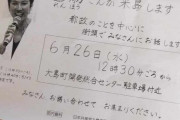 さんが来島します
都政のことを中心に
街頭でみなさんにお話します
6月26日(水)
12時30分ごろから
大島町開発総合センター駐車場付近
みなさん、お誘い合わせて お集まりください。